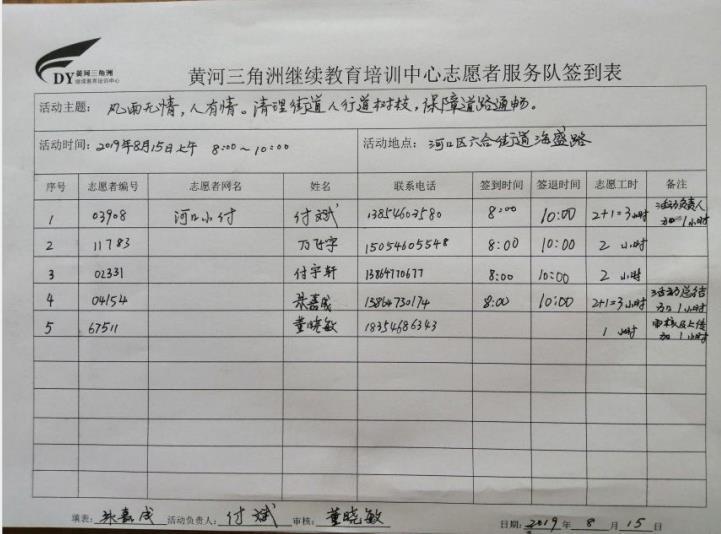 DY 黄河三角洲
继续教育培训中心
黄河三角洲继续教育培训中心志愿者服务队签到表
活动主题: 风雨无情,人有情。清理街道人行道树枝,保障道路通畅。
活动时间: 2019年8月15日上午 8:00~10:00 活动地点: 河口区六合街道海盛路
序号 志愿者编号 志愿者网名 姓名 联系电话 签到时间 签退时间 志愿工时 备注
1 03908 河口小付 付斌 13854603580 8:00 10:00 2+1=3小时 活动负责人
加1小时
2 11783 万飞宇 15054605548 8:00 10:00 2小时
3 02331 付宇轩 13864770677 8:00 10:00 2小时
4 04154 嘉成 13864730174 8:00 10:00 2+1=3小时 活动总结
加1小时
5 67511 董晓敏 18354686343 1小时 审核及上传
加1小时
填表: 嘉成 活动负责人: 付斌 审核: 董晓敏 日期: 2019年8月15日